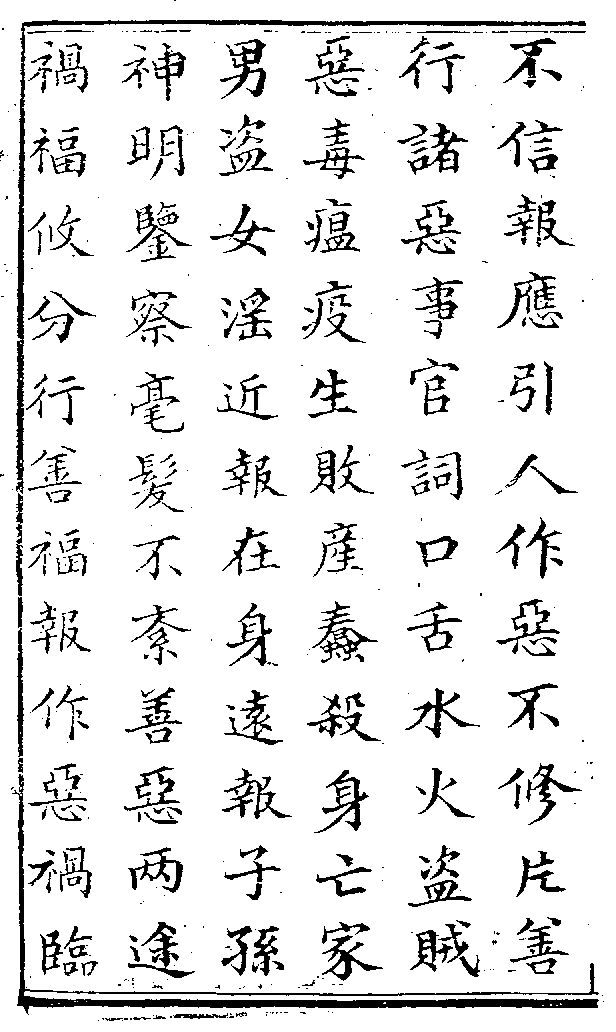 不信報應引人作惡不修片善
行諸惡事官詞口舌水火盜賊
惡毒瘟疫生敗產蠢殺身亡家
男盜女淫近報在身遠報子孫
神明鑒察毫髮不紊善惡两途
禍福攸分行善福報作惡禍臨